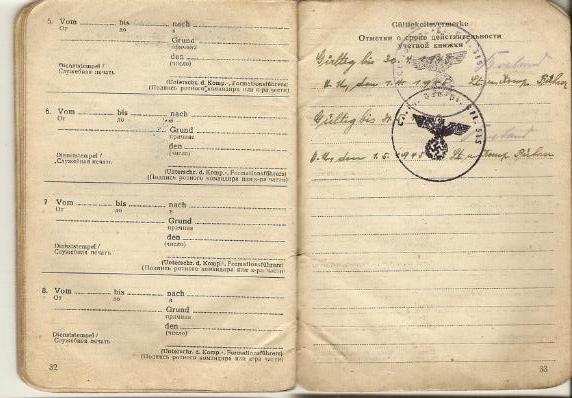 5. Vom bis nach
От до в
Grund
причина
den
(число)
Dienststempel /
Служебная печать
(Unterschr. d. Komp.-, Formationsführers)
(Подпись ротного командира или к-ра части)
6. Vom bis nach
От до в
Grund
причина
den
(число)
Dienststempel /
Служебная печать
(Unterschr. d. Komp.-, Formationsführers)
(Подпись ротного командира или к-ра части)
7 Vom bis nach
От до в
Grund
причина
den
(число)
Dienststempel /
Служебная печать
(Unterschr. d. Komp.-, Formationsführers)
(Подпись ротного командира или к-ра части)
8. Vom bis nach
От до в
Grund
причина
den
(число)
Dienststempel /
Служебная печать
(Unterschr. d. Komp.-, Formationsführers)
(Подпись ротного командира или к-ра части)
32
Gültigkeitsvermerke
Отметки о сроке действительности
учетной книжки
Gültig bis 30.
den 1.
Gültig bis
den 1.5.
33